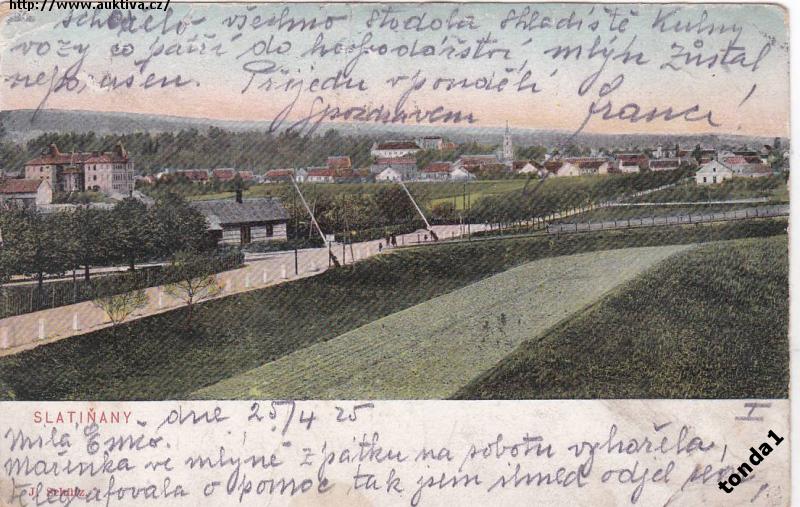 http://www.auktiva.cz/
shořelo všechno stodola skladiště Kulny
vozy co patří do hospodářství, mlýn zůstal
neporušen. Přijedu v pondělí
S pozdravem Franci!
SLATIŇANY dne 25/4 25 I
Milá Emčo.
Mařinka ve mlýně z pátku na sobotu vyhořela,
telegrafovala o pomoc tak jsem ihned odjel sem
J. Schütz
tonda1